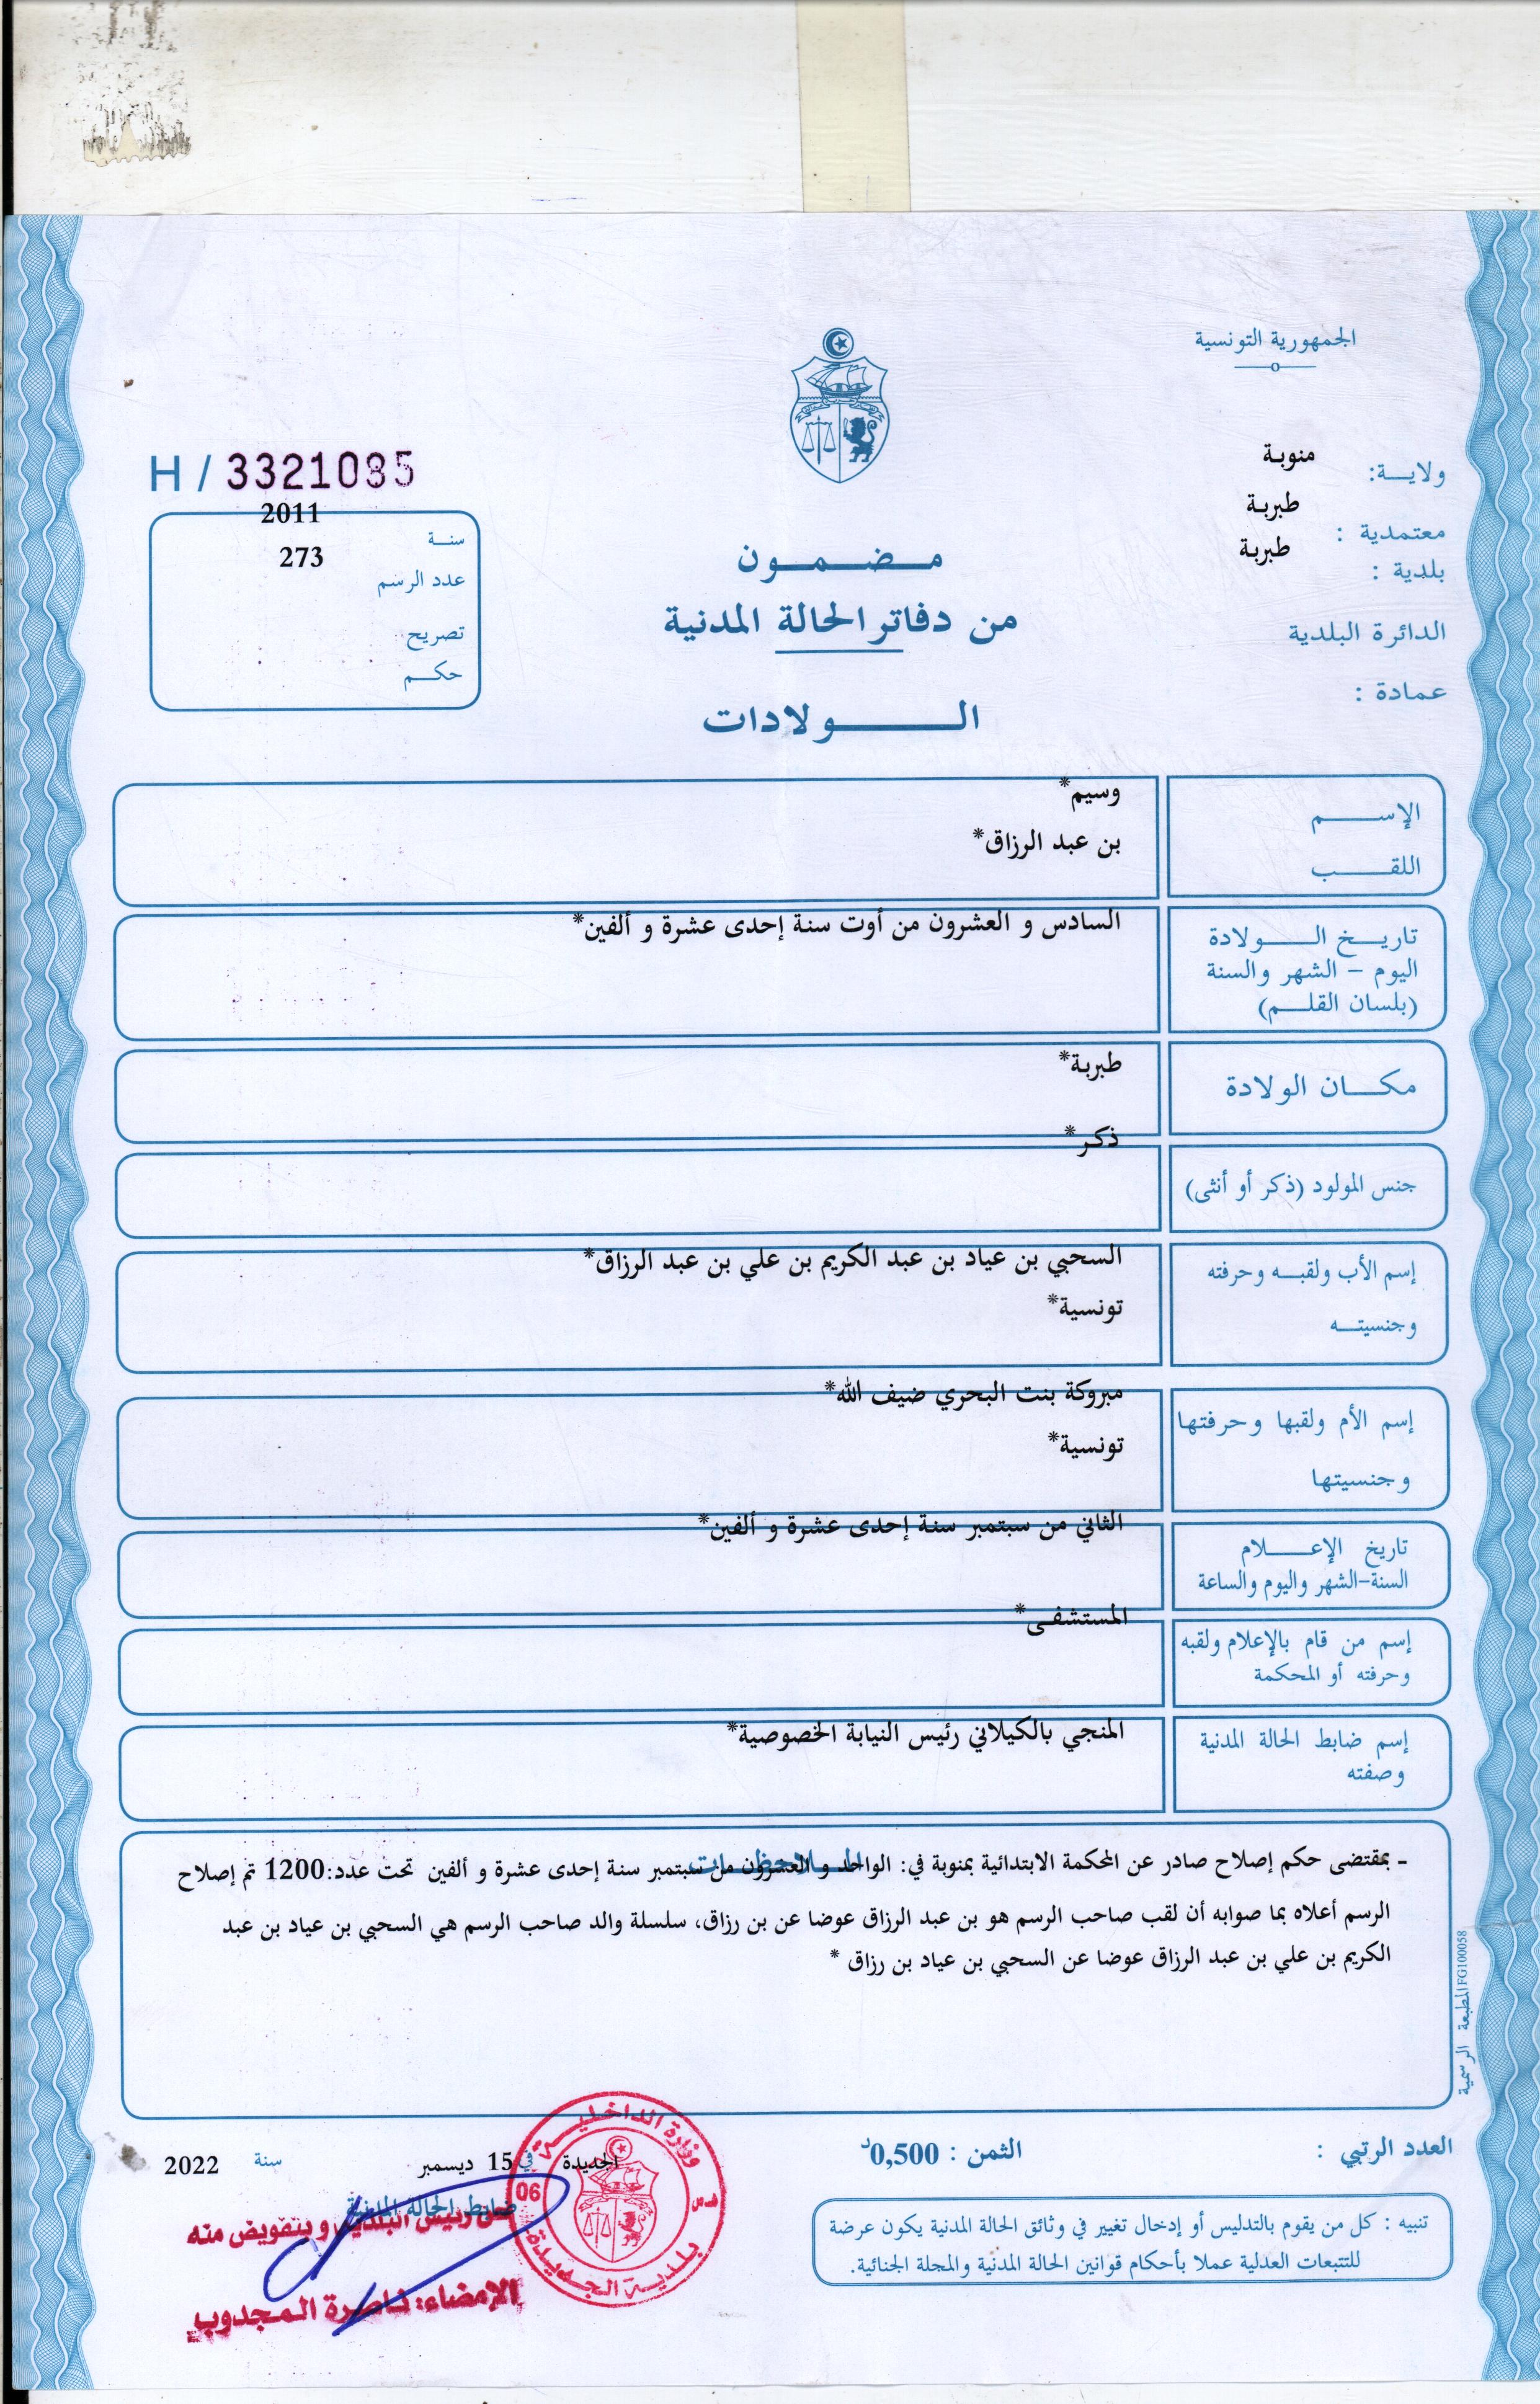 الجمهورية التونسية
ولايـــة: منوبة
معتمدية : طبربة
بلدية : طبربة
الدائرة البلدية
عمادة :
H / 3321085
سنــة 2011
عدد الرسم 273
تصريح
حكــم
مــضــمــون
من دفاتر الحالة المدنية
الــــولادات
الإســــم وسيم*
اللقــــب بن عبد الرزاق*
تاريــخ الــــولادة السادس و العشرون من أوت سنة إحدى عشرة و ألفين*
اليوم – الشهر والسنة
(بلسان القلــم)
مكـــان الولادة طبربة*
جنس المولود (ذكر أو أنثى) ذكر*
إسم الأب ولقبــه وحرفته السحبي بن عياد بن عبد الكريم بن علي بن عبد الرزاق*
وجنسيتــه تونسية*
إسم الأم ولقبها وحرفتها مبروكة بنت البحري ضيف الله*
وجنسيتها تونسية*
تاريخ الإعــــلام الثاني من سبتمبر سنة إحدى عشرة و ألفين*
السنة-الشهر واليوم والساعة
إسم من قام بالإعلام ولقبه المستشفى*
وحرفته أو المحكمة
إسم ضابط الحالة المدنية المنجي بالكيلاني رئيس النيابة الخصوصية*
وصفته
الملاحظــات
- بمقتضى حكم إصلاح صادر عن المحكمة الابتدائية بمنوبة في: الواحد و العشرون من سبتمبر سنة إحدى عشرة و ألفين تحت عدد:1200 تم إصلاح
الرسم أعلاه بما صوابه أن لقب صاحب الرسم هو بن عبد الرزاق عوضا عن بن رزاق، سلسلة والد صاحب الرسم هي السحبي بن عياد بن عبد
الكريم بن علي بن عبد الرزاق عوضا عن السحبي بن عياد بن رزاق *
المطبعة الرسمية FG100058
العدد الرتبي :
الثمن : 0,500د
الجديدة في 15 ديسمبر سنة 2022
ضابط الحالة المدنية
عن رئيس البلدية وبتفويض منه
الإمضاء: ناصرة المجدوب
وزارة الداخلية
06
بلدية الجديدة
تنبيه : كل من يقوم بالتدليس أو إدخال تغيير في وثائق الحالة المدنية يكون عرضة
للتتبعات العدلية عملا بأحكام قوانين الحالة المدنية والمجلة الجنائية.